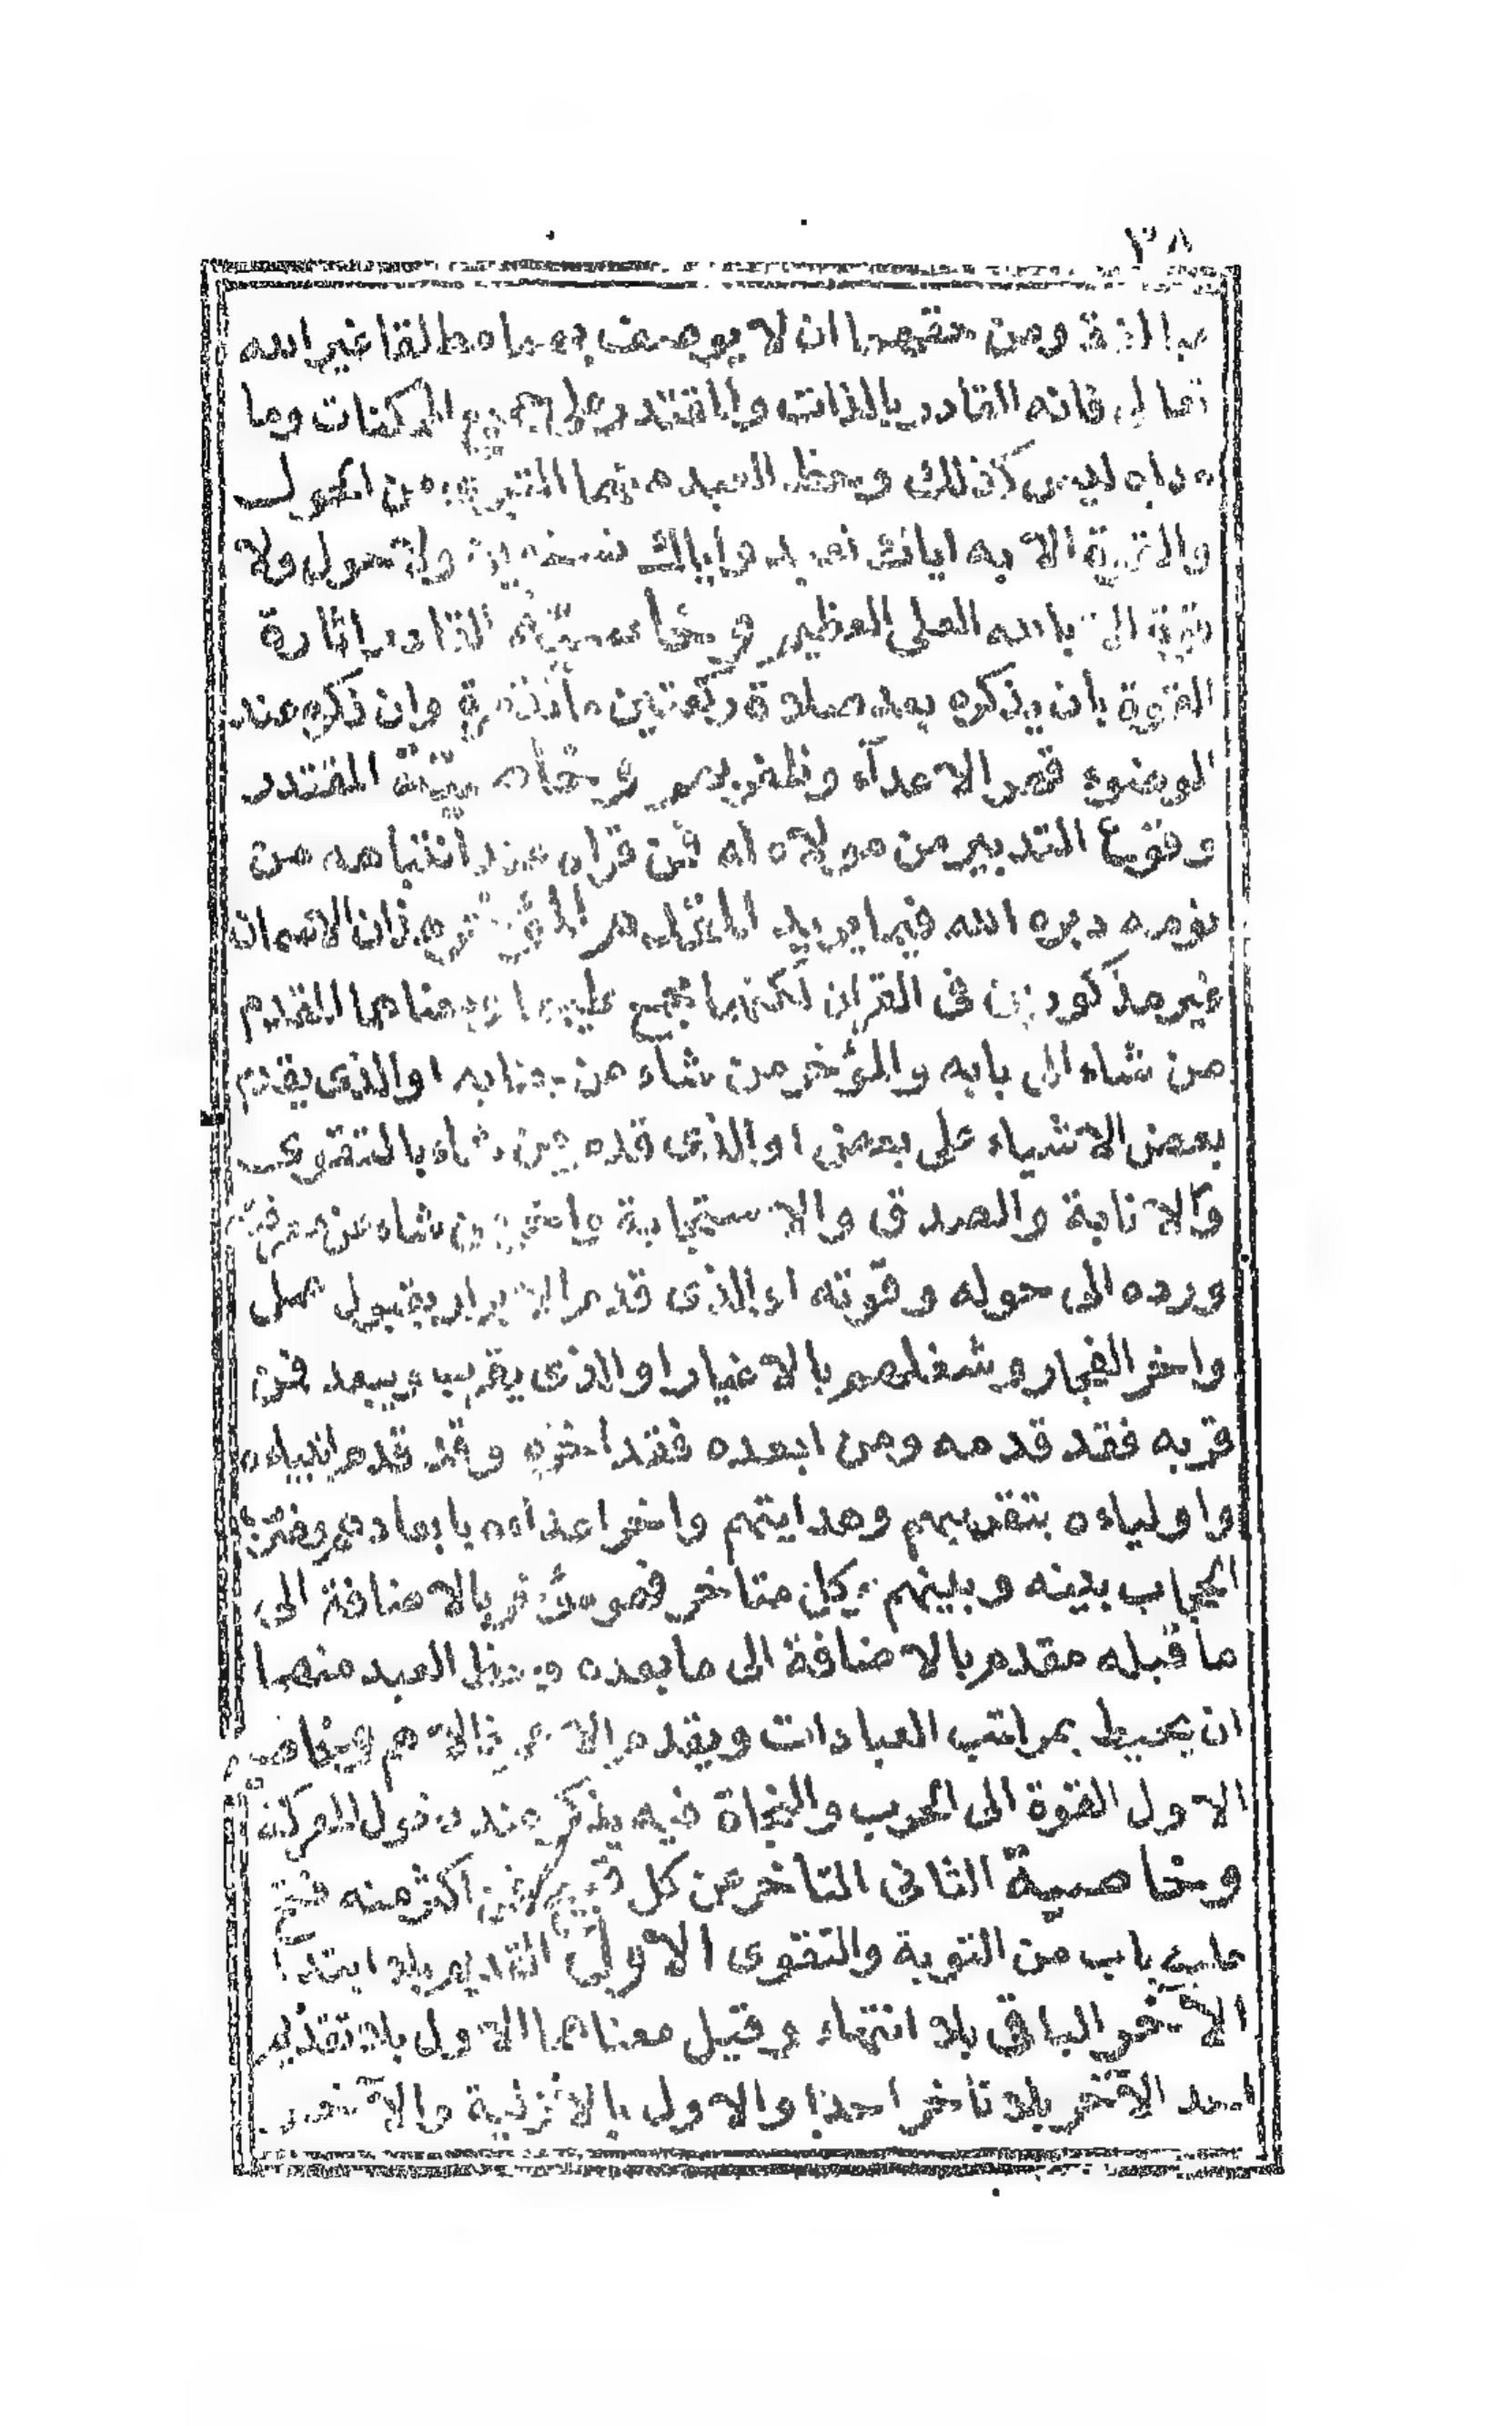 ٣٨
مبالغة ومن حقهما ان لا يوصف بهما مطلقا غير الله
تعالى فانه القادر بالذات والمقتدر على جميع الممكنات وما
عداه ليس كذلك وحظ العبد منهما التبرى من الحول
والقوة الا به اياك نعبد واياك نستعين ولا حول ولا
قوة الا بالله العلى العظيم وخاصية القادر اثارة
القوة بأن يذكره بعد صلاة ركعتين مائة مرة وان ذكره عند
الوضوء قهر الاعدآء وظفر بهم وخاصيّة المقتدر
وقوع التدبير من مولاه له فمن قراه عند انتباهه من
نومه دبره الله فيما يريد المقدم المؤخر هذان الاسمان
غير مذكورين فى القرآن لكنهما مجمع عليهما ومعناهما المقدم
من شاء الى بابه والمؤخر من شاء من جنابه او الذى يقدم
بعض الاشياء على بعض او الذى قدم من شاء بالتقوى
والانابة والصدق والاستجابة واخر من شاء عن معرفته
ورده الى حوله وقوته او الذى قدم الابرار بقبول عمل
واخر الفجار وشغلهم بالاغيار او الذى يقرب ويبعد فمن
قربه فقد قدمه ومن ابعده فقد اخره وقد قدم انبياءه
واولياءه بتقريبهم وهدايتهم واخر اعداءه بابعادهم وضرب
الحجاب بينه وبينهم وكل متاخر فهو مؤخر بالاضافة الى
ما قبله مقدم بالاضافة الى ما بعده وحظ العبد منهما
ان يحيط بمراتب العبادات ويقدم الاهم فالاهم وخاصية
الاول القوة الى الحرب والنجاة فيه يذكر عند دخول المعركة
وخاصية الثانى التاخر عن كل قبيح فمن اكثر منه فتح
عليه باب من التوبة والتقوى الاول القديم بلا ابتدا
الآخر الباقى بلا انتهاء وقيل معناهما الاول بلا تقديم
احد الآخر بلا تأخر احدا والاول بالازلية والآخر